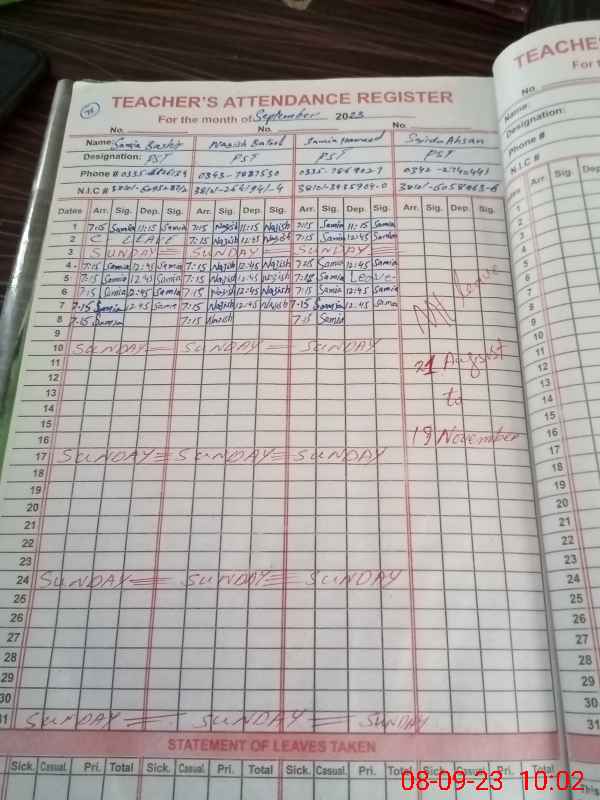 TEACHER'S ATTENDANCE REGISTER
For the month of September 2023
No. No. No.
Name Samia Bashir Nazish Batool Samia Hameed Ahsan
Designation: PST PST PST PST
Phone # 0343-7887530
N.I.C #
Dates Arr. Sig. Dep. Sig. Arr. Sig. Dep. Sig. Arr. Sig. Dep. Sig. Arr. Sig. Dep. Sig.
1 7:15 Samia 11:15 Samia 7:15 Nazish 11:15 Nazish 7:15 Samia 11:15 Samia
2 C LEAVE 7:15 Nazish 12:45 Nazish 7:15 Samia 12:45 Samia
3 SUNDAY = SUNDAY = SUNDAY
4 7:15 Samia 12:45 Samia 7:15 Nazish 12:45 Nazish 7:15 Samia 12:45 Samia
5 7:15 Samia 12:45 Samia 7:15 Nazish 12:45 Nazish 7:15 Samia Leave
6 7:15 Samia 12:45 Samia 7:15 Nazish 12:45 Nazish 7:15 Samia 12:45 Samia
7 7:15 Samia 12:45 Samia 7:15 Nazish 12:45 Nazish 7:15 Samia 12:45 Samia
8 7:15 Samia 7:15 Nazish 7:15 Samia
9
10 SUNDAY = SUNDAY = SUNDAY
11
12
13
14
15
16
17 SUNDAY = SUNDAY = SUNDAY
18
19
20
21
22
23
24 SUNDAY = SUNDAY = SUNDAY
25
26
27
28
29
30
31 SUNDAY = SUNDAY = SUNDAY
leave
21 August
to
18 November
STATEMENT OF LEAVES TAKEN
Sick. Casual. Pri. Total Sick. Casual. Pri. Total Sick. Casual. Pri. Total Sick. Casual. Pri. Total
TEACHE
For t
No.
Name:
Designation:
Phone #
N.I.C #
Dates Arr. Sig. Dep.
1
2
3
4
5
6
7
8
9
10
11
12
13
14
15
16
17
18
19
20
21
22
23
24
25
26
27
28
29
30
31
08-09-23 10:02